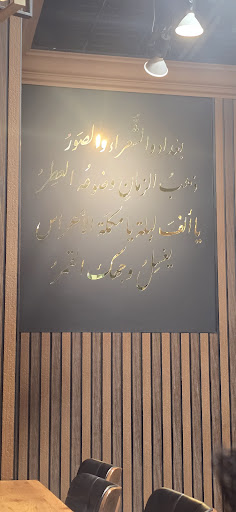 بغداد والشعراء والصور
ذهب الزمان وضوعه العطر
يا ألف ليلة يا مكملة الأعراس
يغسل وجهك القمر